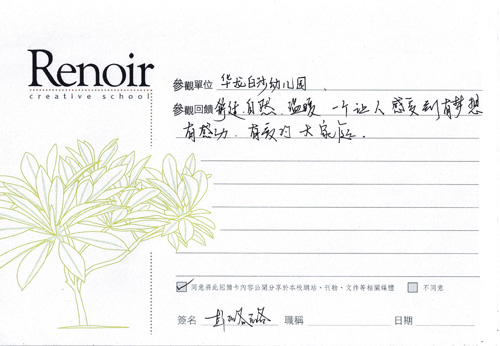 Renoir
creative school
參觀單位 华龙白沙幼儿园
參觀回饋 舒适.自然.温暖 一个让人感受到有梦想
有感动.有爱的大家庭.
同意將此回饋卡內容公開分享於本校網站、刊物、文件等相關媒體 不同意
簽名 職稱 日期